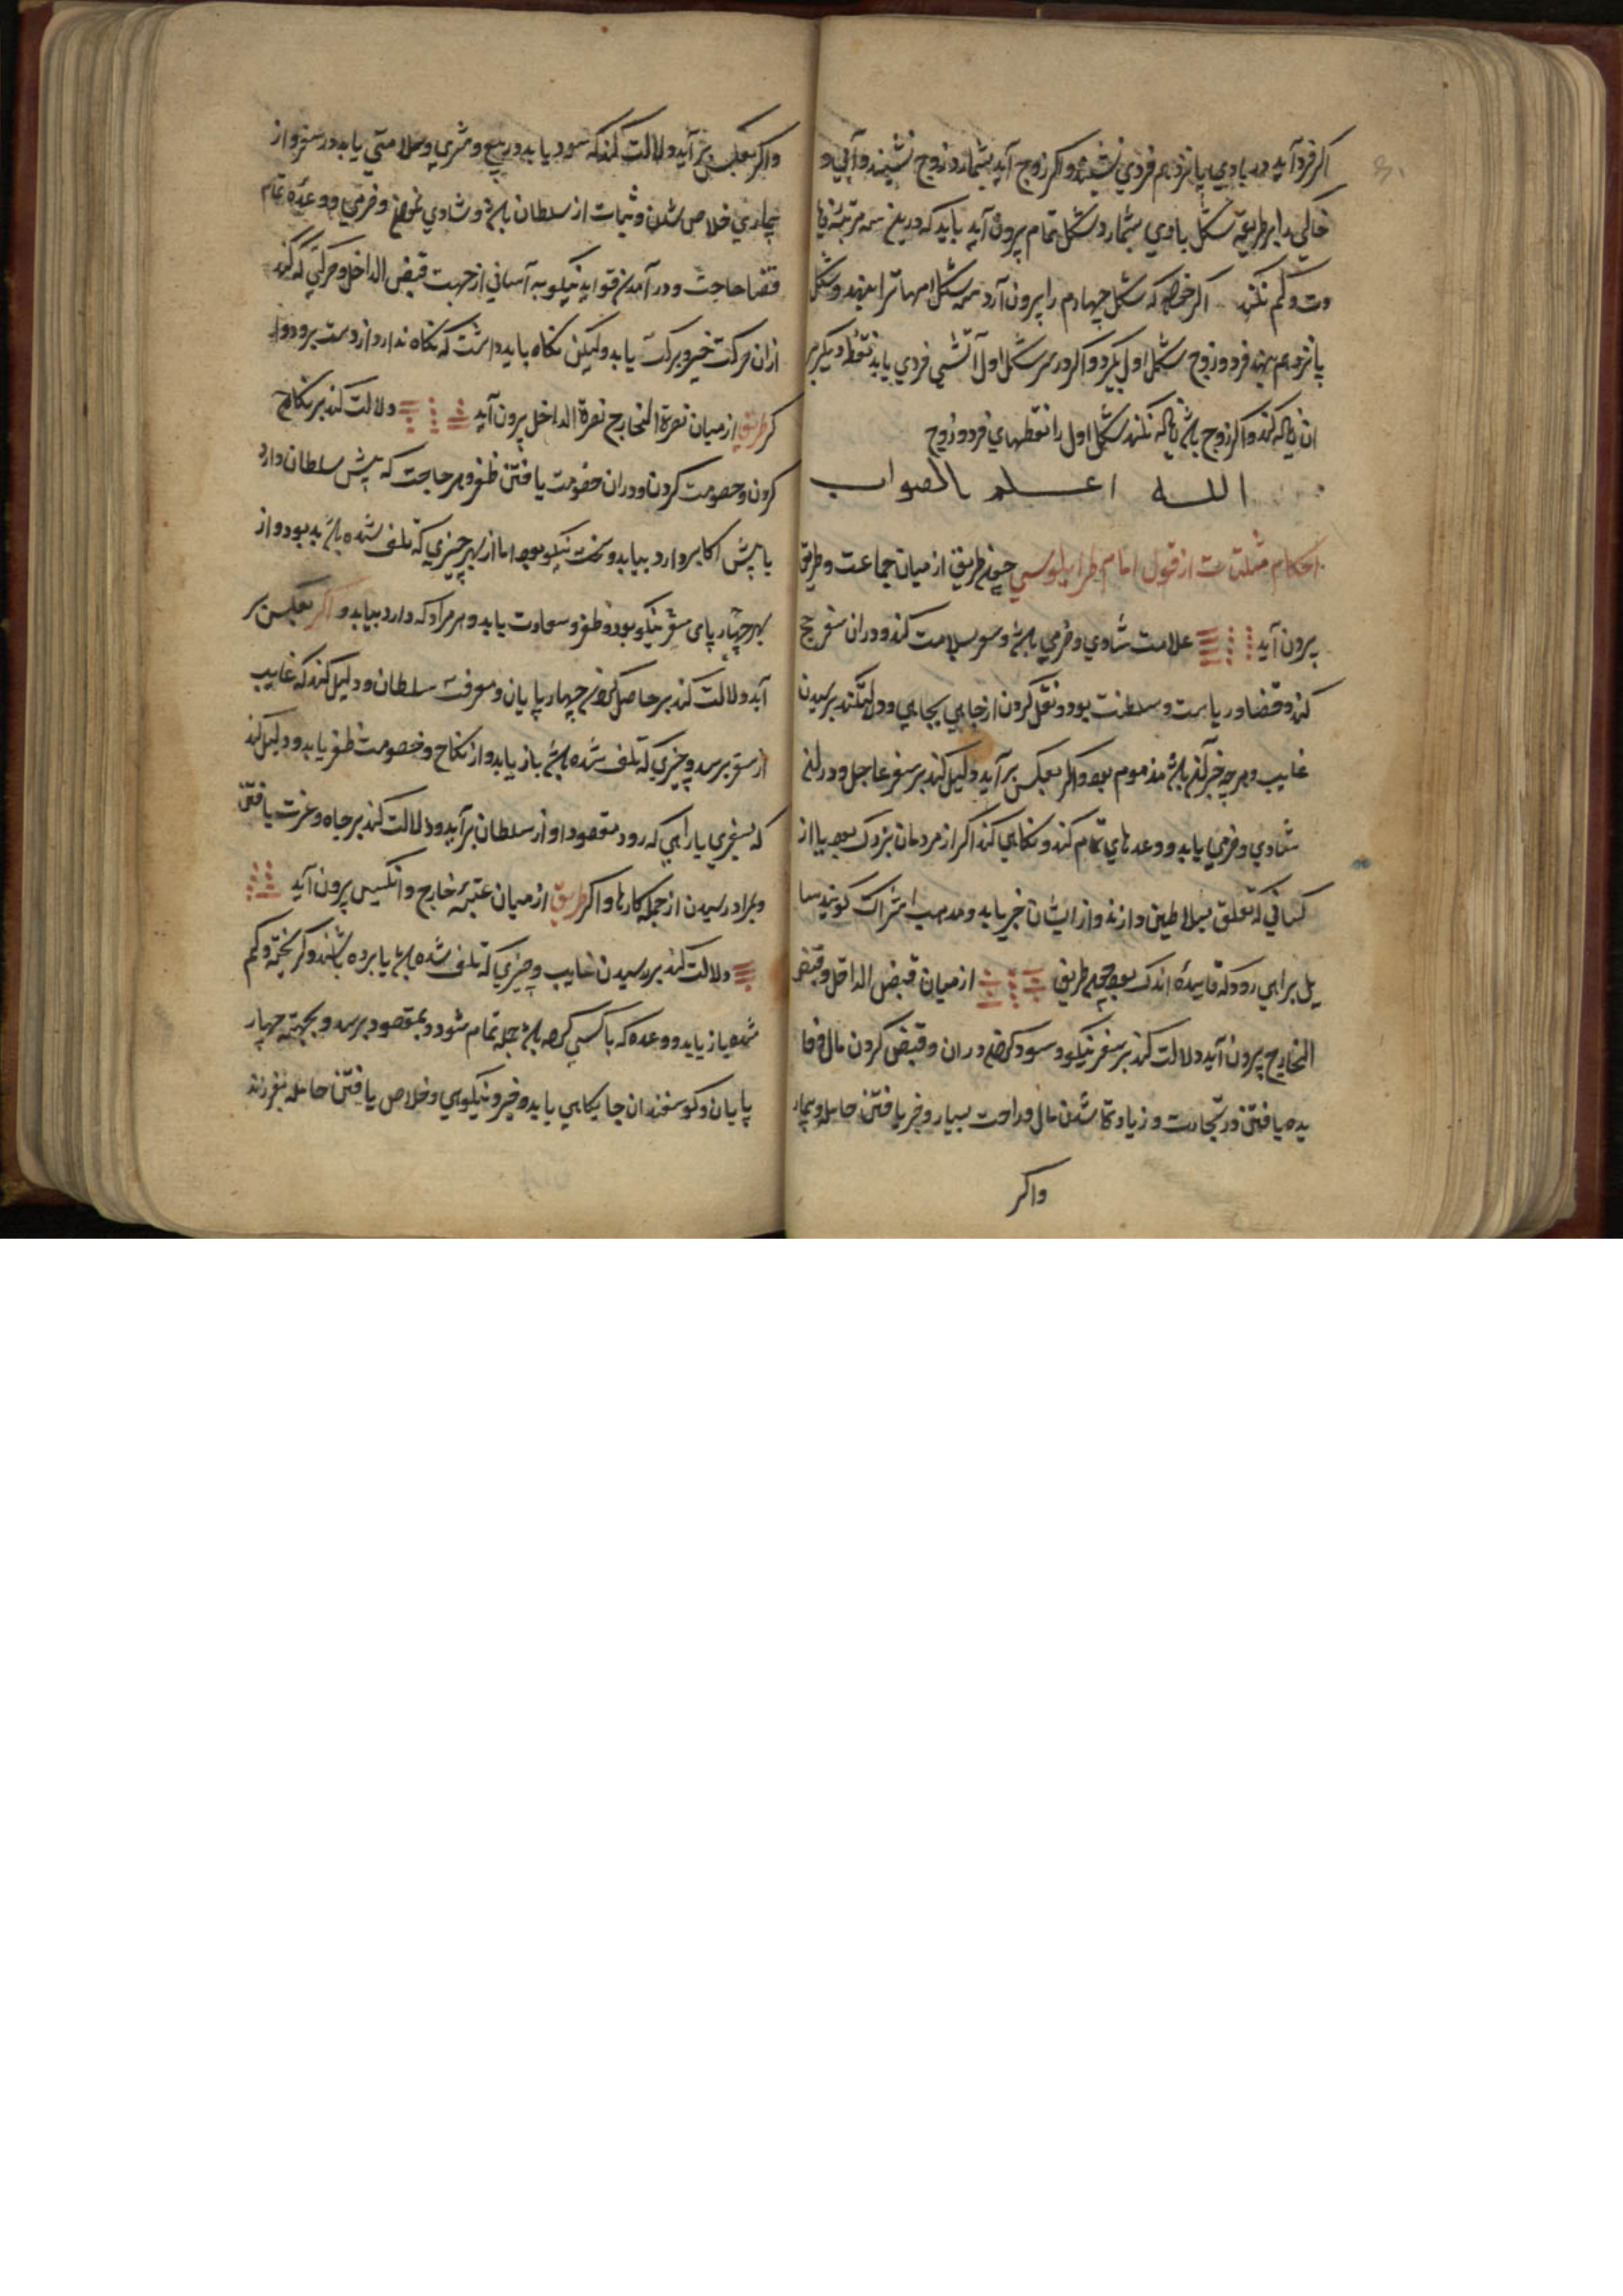 اکر فرد آید در بادی پانزدهم فردی نشیند و اکر زوج آید بشمارد زوج نشیند و آبی و
خاکی را بر طریقه شکل بادی بشمارد شکل تمام بیرون آید باید که درین سه مرتبه
وت و کم نکند اکر خواهد که شکل چهارم را بیرون آرد سه شکل امهاترا بنهد و شکل
پانزدهم بنهد فرد و زوج شکل اول بکیرد و اکر در سر شکل اول آتشی فردی یابد نقطه دیکر بر
ان کند و اکر زوج باشد نکند شکل اول را نقطهای فرد و زوج
الله اعلم بالصواب
احکام مثلثات از قول امام طرابلوسی چون طریق از میان جماعت و طریق
بیرون آید علامت شادی و خرمی باشد و سفر بسلامت کند و دران سفر حج
کند و قضا و ریاست و سلطنت بود و نقل کردن از جایی بجایی و دلیل کند بر رسیدن
غایب و هر چه جز آن باشد مذموم بود و اکر بعکس بر آید دلیل کند بر سفر عاجل و در
شادی و خرمی یابد و وعدهای تمام کند و نکاحی کند اکر از مردمان بزرک بود یا از
کسانی که تعلق بسلاطین دارند و از ایشان خیر یابد و
براهی رود که فایده اندک بود طریق از میان قبض الداخل و قبض
الخارج بیرون آید دلالت کند بر سفر نیکو و سود کردن دران و قبض کردن مال و فا
یده یافتن در تجارت و زیادت شدن مال و راحت بسیار و خبر یافتن حامله و بیمار
واکر
واکر بعکس بر آید دلالت کند که سود یابد در بیع و شری و سلامتی یابد در سفر و از
بیماری خلاص شدن و ثبات از سلطان باشد و شادی و خرمی و وعده تمام
قضا حاجت و در آمدن فواید نیکو به آسانی از جهت قبض الداخل و حرکتی که کند
ازان حرکت خیر و برکت یابد و لیکن نکاه باید داشت که نکاه ندارد از دست برود و ا
کر طریق از میان نصرة الخارج نصرة الداخل بیرون آید دلالت کند بر نکاح
کردن و خصومت کردن و دران خصومت یافتن ظفر و هر حاجت که پیش سلطان دارد
یا پیش اکابر دارد بیابد و سخت نیکو بود اما از بهر چیزی که تلف شده باشد بد بود و از
بهر چهار پای سفر نیکو بود و ظفر و سعادت یابد و هر مراد که دارد بیابد و اکر بعکس بر
آید دلالت کند بر حاصل کردن چهار پایان و معرفت سلطان و دلیل کند که غایب
از سفر برسد و چیزی که تلف شده باشد باز یابد و از نکاح و خصومت ظفر یابد و دلیل کند
که بسفری یا راهی که رود مقصود او از سلطان بر آید و دلالت کند بر جاه و عزت یافتن
و بمراد رسیدن از جمله کارها و اکر طریق از میان عتبه خارج و انکیس بیرون آید
دلالت کند بر رسیدن غایب و چیزی که تلف شده باشد یا برده باشند و کریخته و کم
شده باز یابد و وعده که با کسی کرده باشد جمله تمام شود و بمقصود برسد و بجهت چهار
پایان و کوسفندان جایکاهی یابد و خیر و نیکویی و خلاص یافتن حامله بفرزند